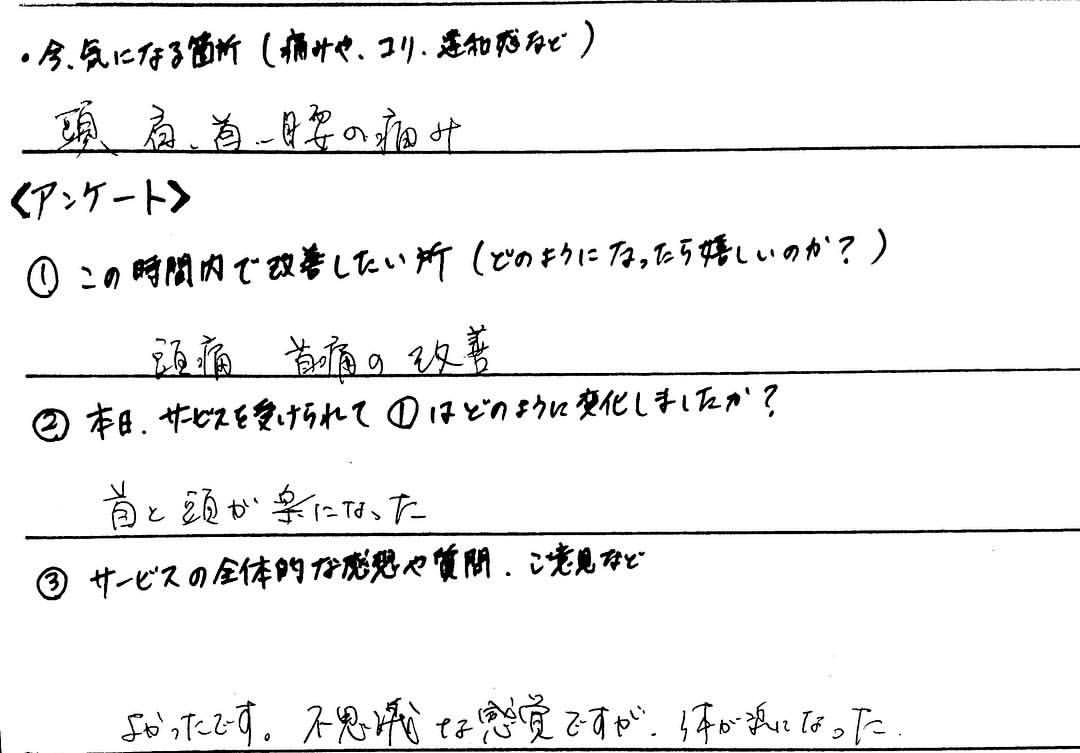 ・今、気になる箇所(痛みや、コリ、違和感など)
頭、肩、首、腰の痛み
<アンケート>
① この時間内で改善したい所(どのようになったら嬉しいのか?)
頭痛 首痛の改善
② 本日、サービスを受けられて①はどのように変化しましたか?
首と頭が楽になった
③ サービスの全体的な感想や質問、ご意見など
よかったです。不思議な感覚ですが、体が楽になった。